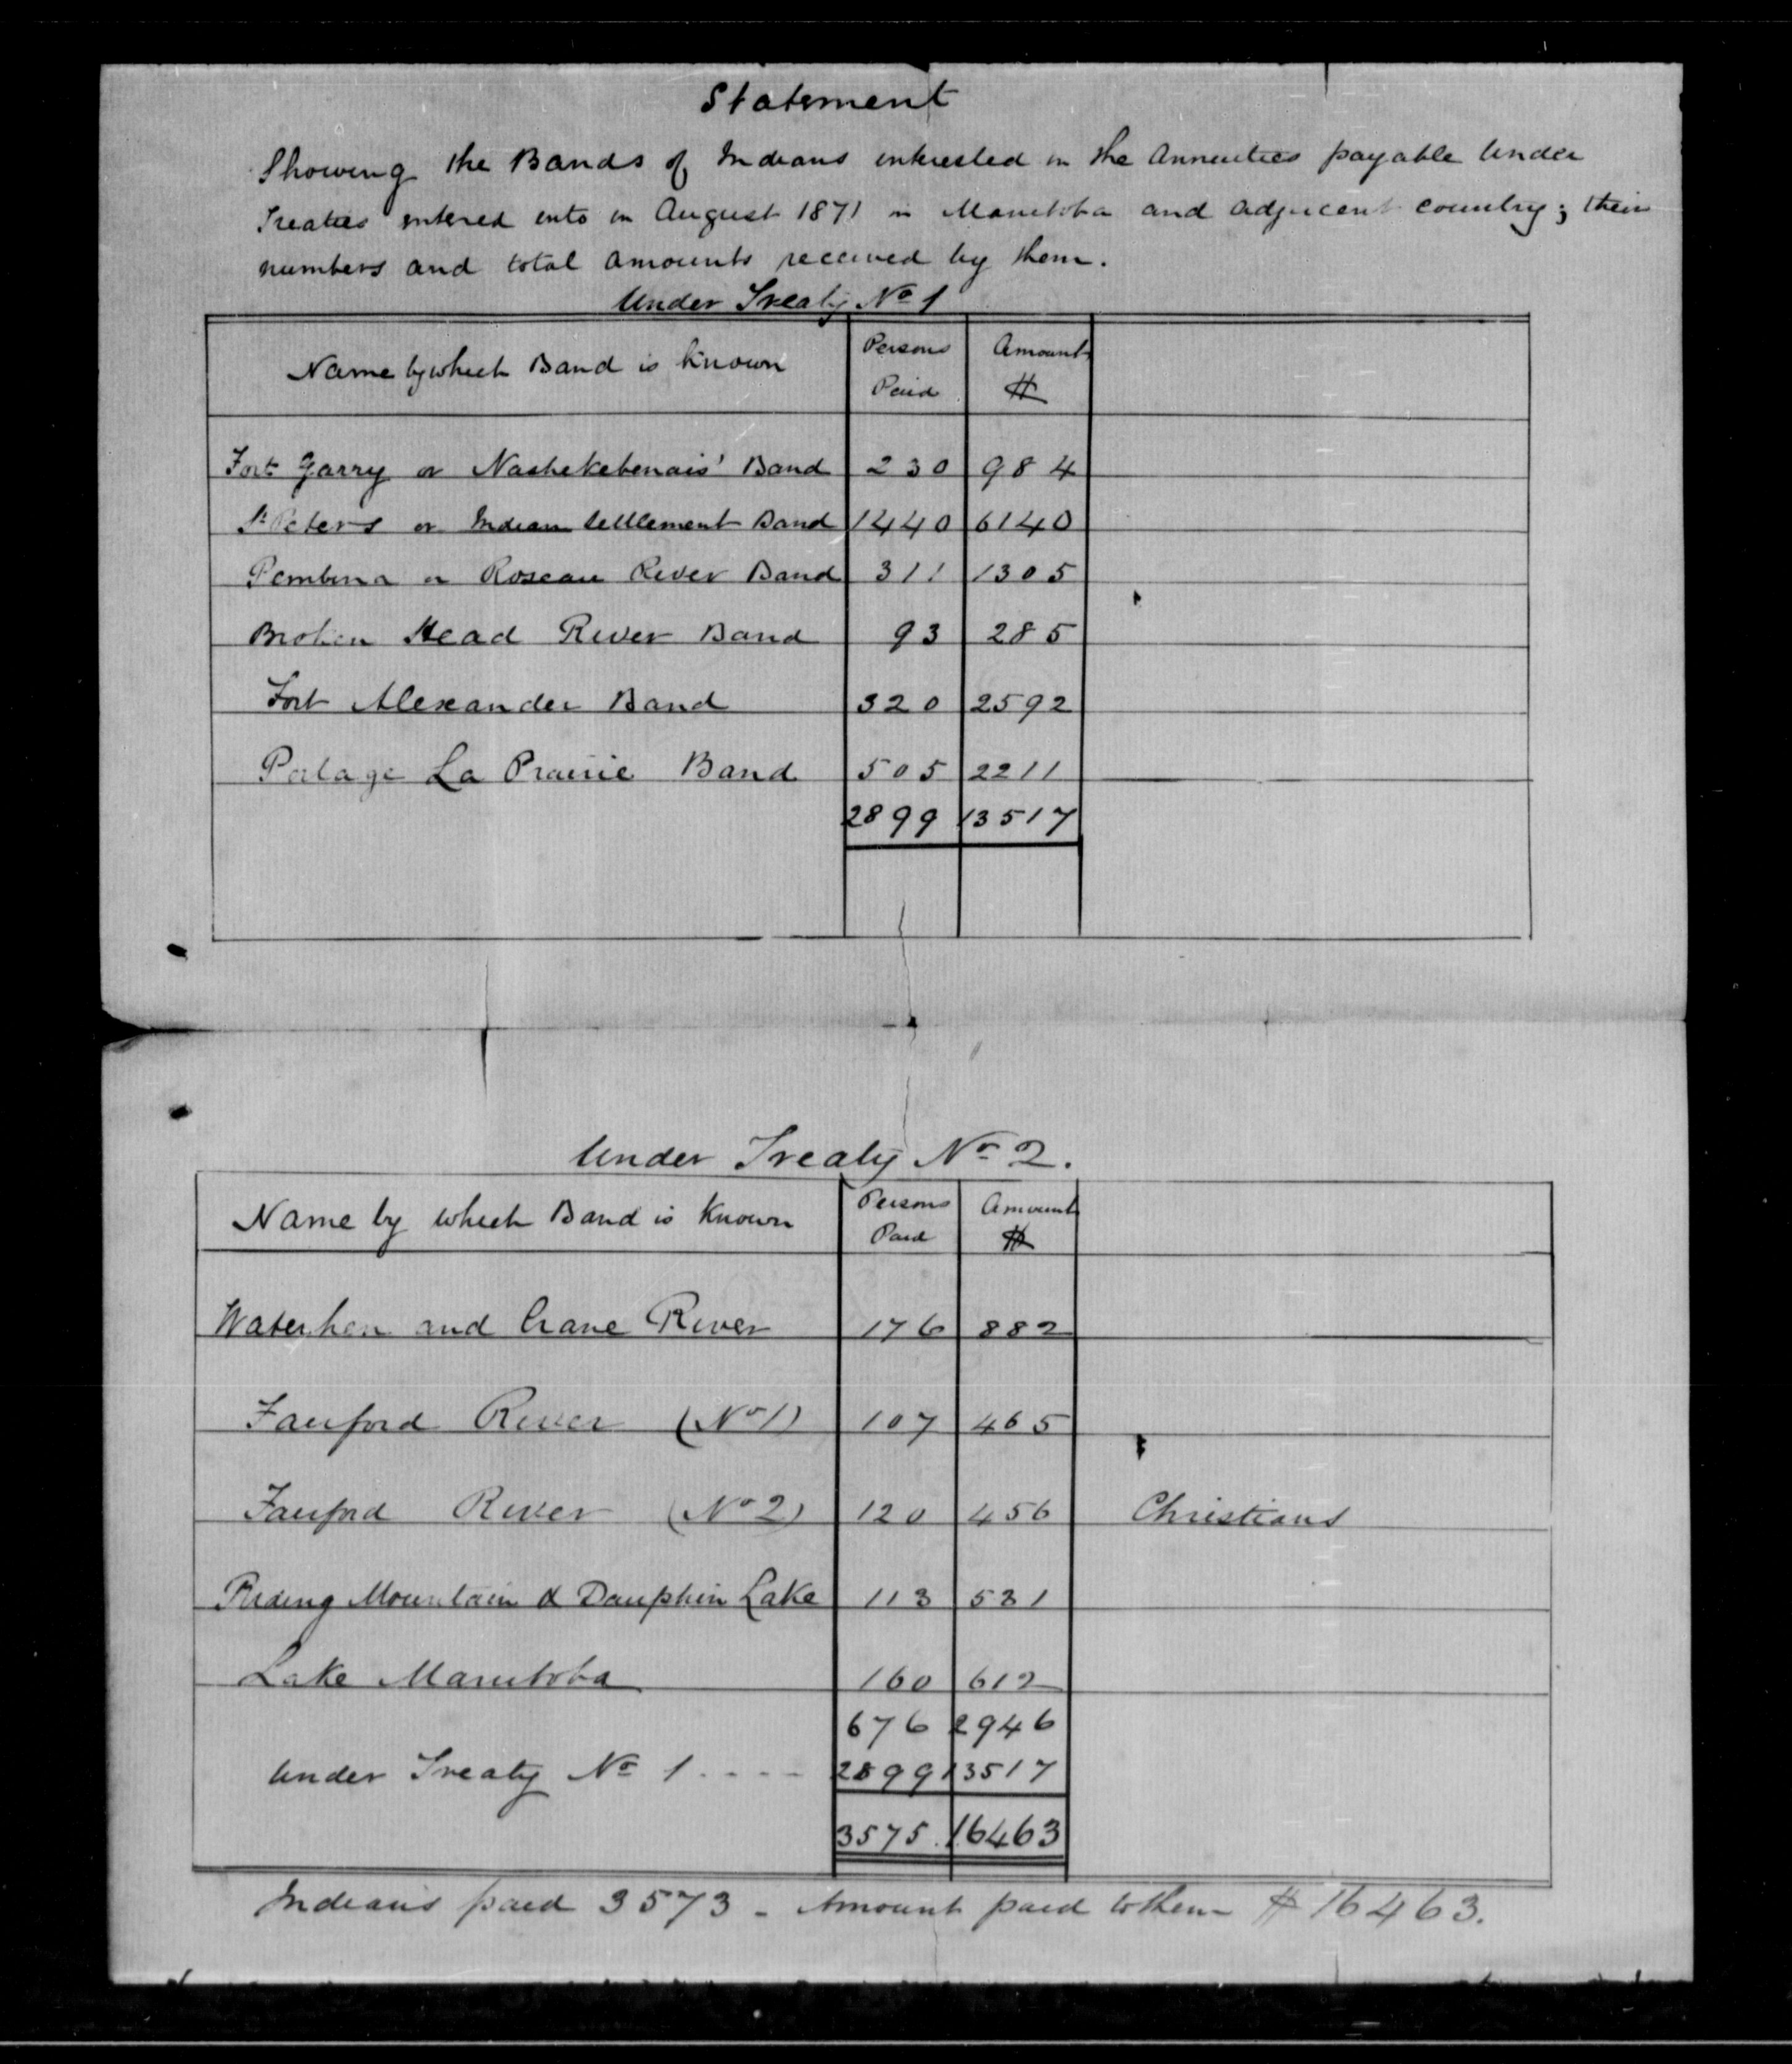 Statement
Showing the Bands of Indians interested in the Annuities payable Under
Treaties entered into in August 1871 in Manitoba and adjacent country; their
numbers and total amounts received by them.
Under Treaty No 1
Name by which Band is Known Persons Paid Amount $
Fort Garry or Nashekebenais' Band 230 984
St Peters or Indian Settlement Band 1440 6140
Pembina or Roseau River Band 311 1305
Broken Head River Band 93 285
Fort Alexander Band 320 2592
Portage La Prairie Band 505 2211
2899 13517
Under Treaty No 2.
Name by which Band is Known Persons Paid Amount $
Waterhen and Crane River 176 882
Fairford River (No 1) 107 465
Fairford River (No 2) 120 456 Christians
Riding Mountain & Dauphin Lake 113 531
Lake Manitoba 160 612
676 2946
Under Treaty No 1 .... 2899 13517
3575 16463
Indians paid 3573 - Amount paid to them $16463.